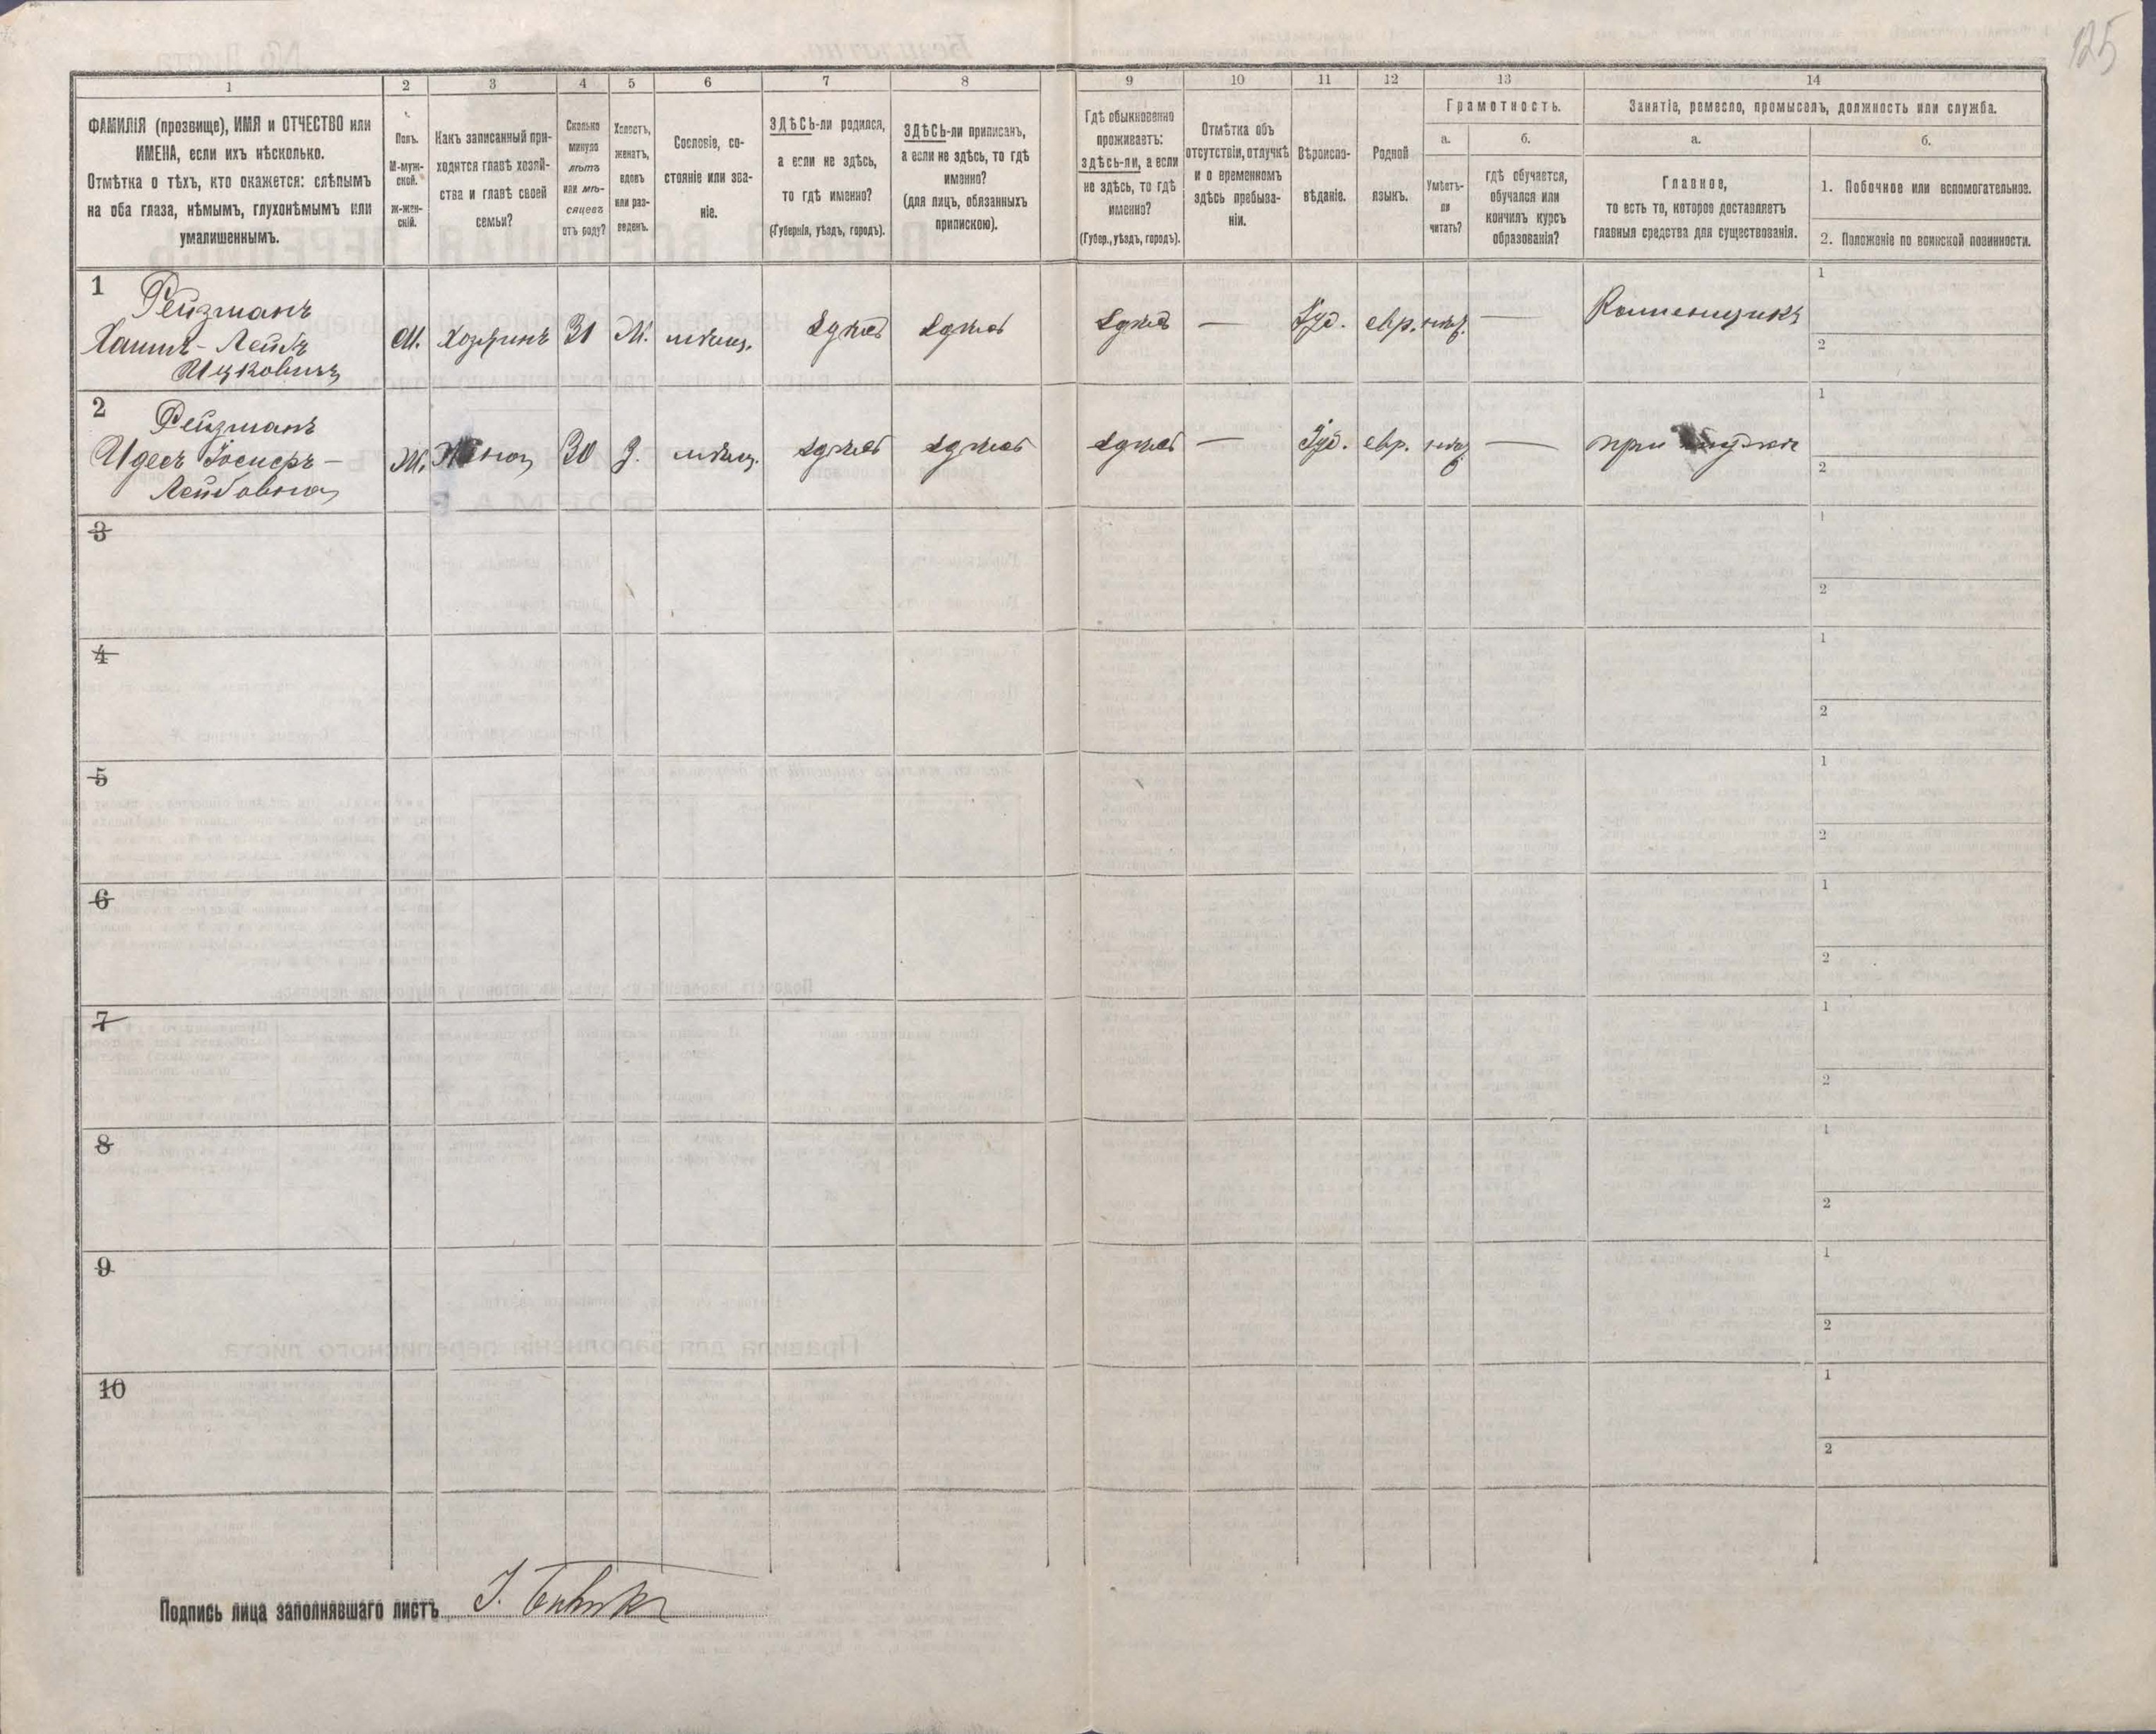 125
1
2
3
4
5
6
7
8
9
10
11
12
13
14
ФАМИЛІЯ (прозвище), ИМЯ и ОТЧЕСТВО или
ИМЕНА, если ихъ нѣсколько.
Отмѣтка о тѣхъ, кто окажется: слѣпымъ
на оба глаза, нѣмымъ, глухонѣмымъ или
умалишеннымъ.
Полъ.
М-муж-
ской.
Ж-жен-
скій.
Какъ записанный при-
ходится главѣ хозяй-
ства и главѣ своей
семьи?
Сколько
минуло
лѣтъ
или мѣ-
сяцевъ
отъ роду?
Холостъ,
женатъ,
вдовъ
или раз-
веденъ.
Сословіе, со-
стояніе или зва-
ніе.
ЗДѢСЬ-ли родился,
а если не здѣсь,
то гдѣ именно?
(Губернія, уѣздъ, городъ).
ЗДѢСЬ-ли приписанъ,
а если не здѣсь, то гдѣ
именно?
(для лицъ, обязанныхъ
припискою).
Гдѣ обыкновенно
проживаетъ:
здѣсь-ли, а если
не здѣсь, то гдѣ
именно?
(Губер., уѣздъ, городъ).
Отмѣтка объ
отсутствіи, отлучкѣ
и о временномъ
здѣсь пребыва-
ніи.
Вѣроиспо-
вѣданіе.
Родной
языкъ.
Грамотность.
а.
б.
Умѣетъ-
ли
читать?
гдѣ обучается,
обучался или
кончилъ курсъ
образованія?
Занятіе, ремесло, промыселъ, должность или служба.
а.
б.
Главное,
то есть то, которое доставляетъ
главныя средства для существованія.
1. Побочное или вспомогательное.
2. Положеніе по воинской повинности.
1
Рейзманъ
Хаимъ-Лейбъ
Ицковичъ
М. Хозяинъ 31 Ж. мѣщ. Здѣсь Здѣсь Здѣсь — Іуд. евр. —
1
2
2
Рейзманъ
Идесъ Іосифъ-
Лейбовна
Ж. Жена 30 З. мѣщ. Здѣсь Здѣсь Здѣсь — Іуд. евр. — при мужѣ
1
2
3
1
2
4
1
2
5
1
2
6
1
2
7
1
2
8
1
2
9
1
2
10
1
2
Подпись лица заполнявшаго листъ